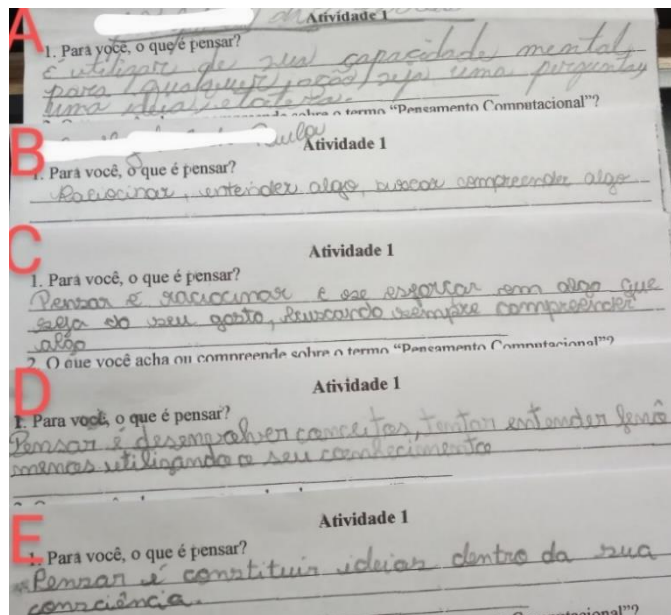 A
Atividade 1
1. Para você, o que é pensar?
é utilizar de sua capacidade mental
para qualquer ação, seja uma pergunta,
uma ideia, etcetera.
sobre o termo “Pensamento Computacional”?
B
Paula
Atividade 1
1. Para você, o que é pensar?
Raciocinar, entender algo, buscar compreender algo
C
Atividade 1
1. Para você, o que é pensar?
Pensar é raciocinar e se esforçar em algo que
seja do seu gosto, buscando sempre compreender
algo
2. O que você acha ou compreende sobre o termo “Pensamento Computacional”?
D
Atividade 1
1. Para você, o que é pensar?
Pensar é desenvolver conceitos, tentar entender fenô
menos utilizando o seu conhecimento
E
Atividade 1
1. Para você, o que é pensar?
Pensar é constituir ideias dentro da sua
consciência.